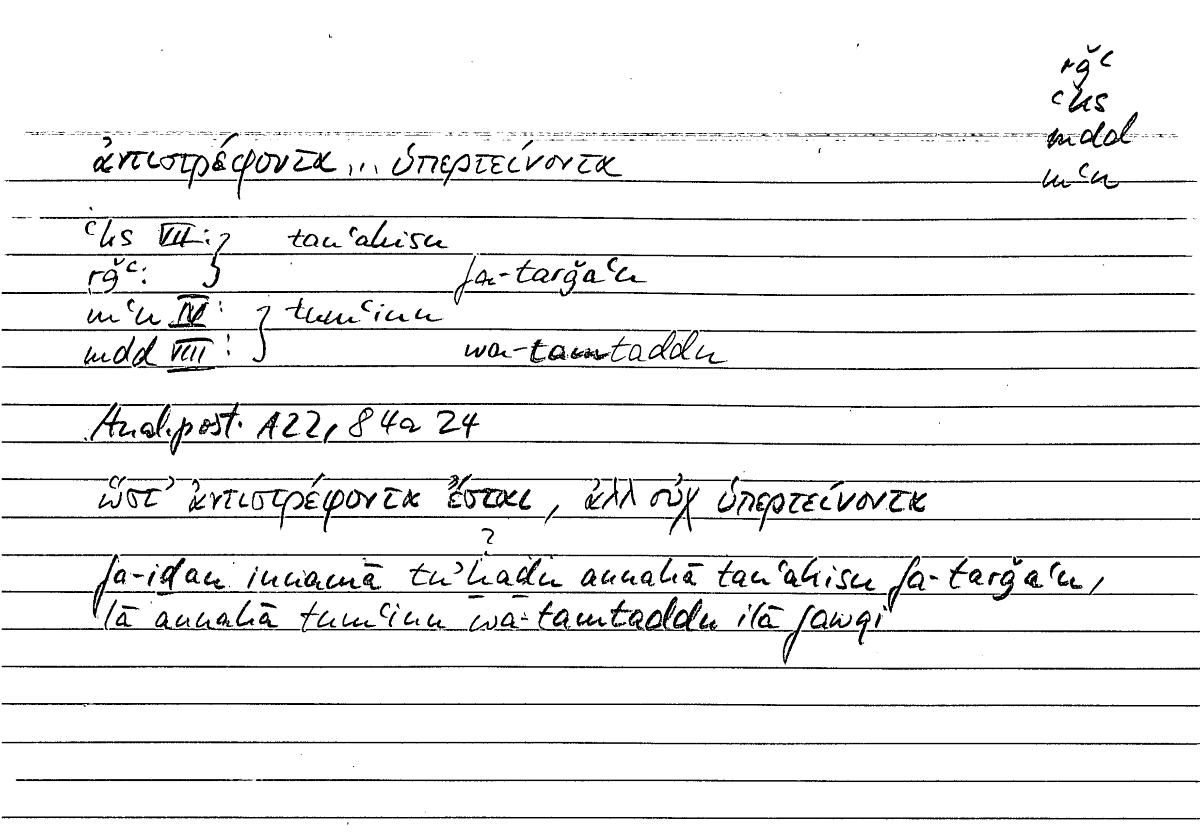 rǧʿ
ʿks
mdd
mʿn
ἀντιστρέφοντα ... ὑπερτείνοντα
ʿks VII: } tanʿakisu
rǧʿ: fa-tarǧaʿu
mʿn IV: } tumʿinu
mdd VIII: wa-tamtaddu
Anal. post. A22, 84a 24
ὥστ’ ἀντιστρέφοντα ἔσται, ἀλλ οὐχ ὑπερτείνοντα
?
fa-iḏan innamā tuʾḫaḏu annahā tanʿakisu fa-tarǧaʿu,
lā annahā tumʿinu wa-tamtaddu ilā fawqi